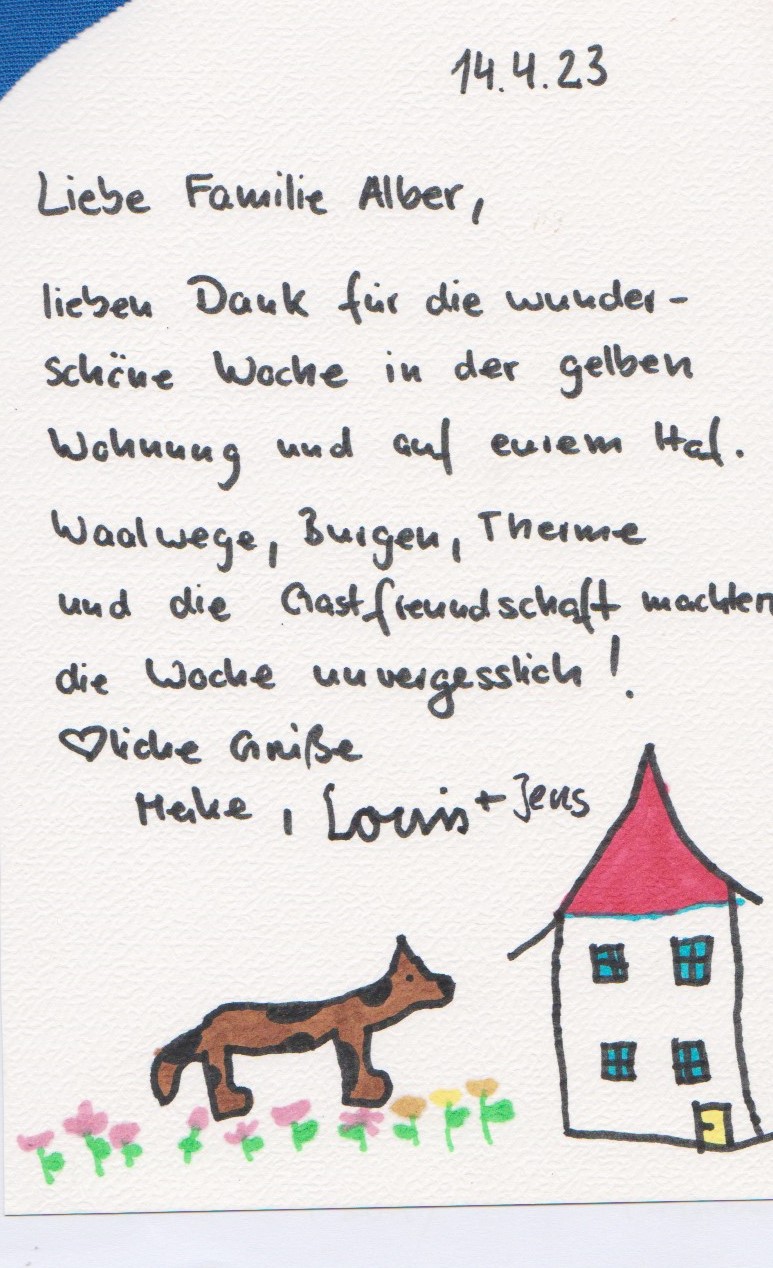 14.4.23
Liebe Familie Alber,
lieben Dank für die wunder-
schöne Woche in der gelben
Wohnung und auf eurem Hof.
Waalwege, Burgen, Therme
und die Gastfreundschaft machten
die Woche unvergesslich!
♡liche Grüße
Meike, Louis + Jens